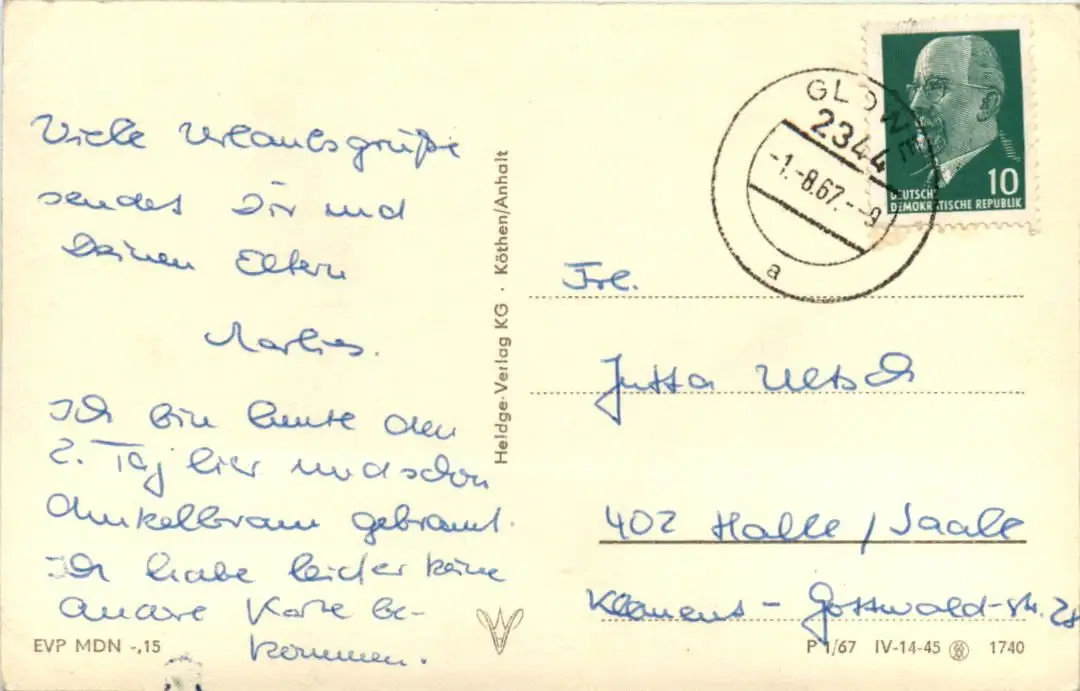 Viele Urlaubsgrüße
sendet Dir und
Deinen Eltern
Marlies.
Ich bin heute den
2. Tag hier und schon
dunkelbraun gebrannt.
Ich habe leider keine
andere Karte be-
kommen.
EVP MDN -,15
Heldge-Verlag KG · Köthen/Anhalt
GLOWE
2344
-1.-8.67.--9
a
10
DEUTSCHE
DEMOKRATISCHE REPUBLIK
Frl.
Jutta
402 Halle / Saale
Klement - Gottwald-str. 28
P 1/67 IV-14-45 1740